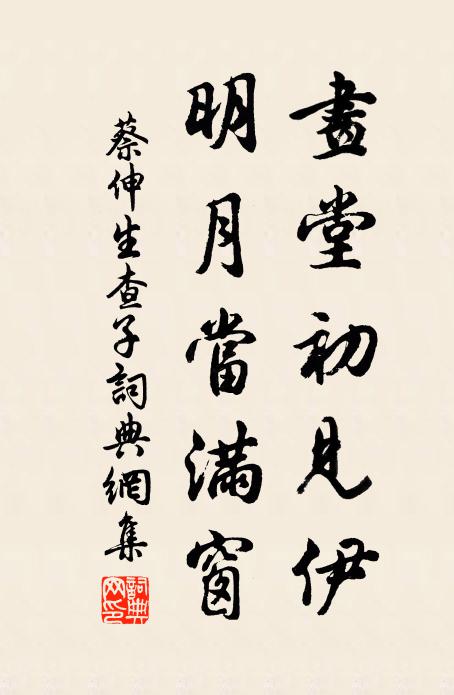 畫堂初見伊
明月當滿窗
蔡伸生查子詞典網集
詞典网印